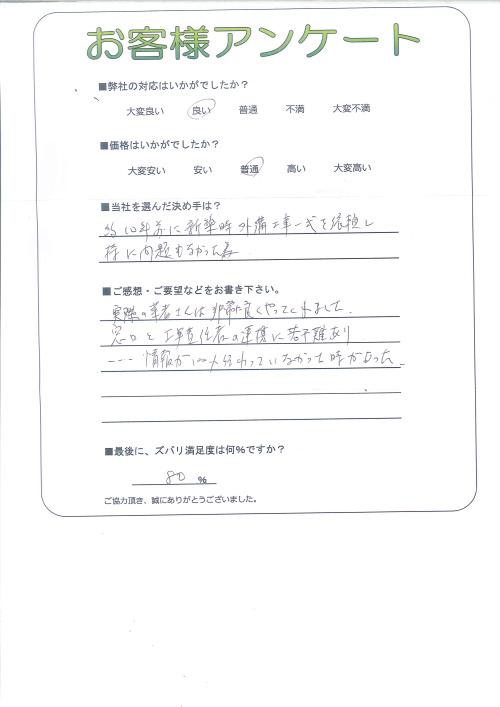 お客様アンケート
■弊社の対応はいかがでしたか？
大変良い 良い 普通 不満 大変不満
■価格はいかがでしたか？
大変安い 安い 普通 高い 大変高い
■当社を選んだ決め手は？
約10年前に新築時外構工事一式を依頼し
特に問題もなかった為
■ご感想・ご要望などをお書き下さい。
実際の業者さんは非常に良くやってくれました.
窓口と工事責任者の連携に若干難あり
---- 情報が100%伝わっていなかった時があった.
■最後に、ズバリ満足度は何％ですか？
80 ％
ご協力頂き、誠にありがとうございました。